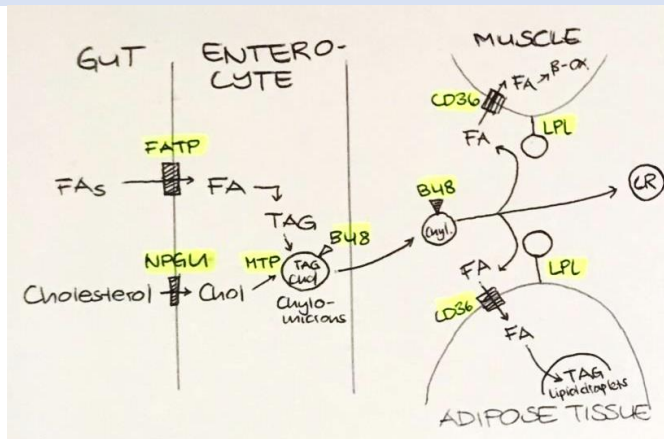 GUT
ENTERO-
CYTE
MUSCLE
FATP
FAs
FA
TAG
NPGL1
MTP
B48
TAG
Chol
Cholesterol
Chol
Chylo-
microns
B48
Chyl.
CD36
FA
FA
β-ox
LPL
CR
FA
LPL
CD36
FA
TAG
Lipid droplets
ADIPOSE TISSUE